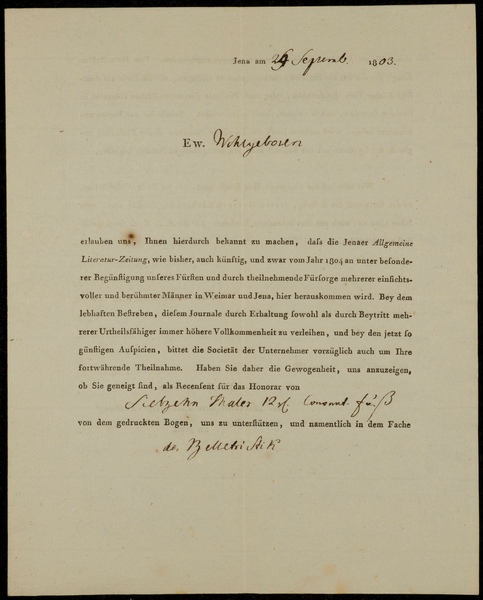 Jena am 29 Septemb. 1803.
Ew. Wohlgeboren
erlauben uns, Ihnen hierdurch bekannt zu machen, daſs die Jenaer Allgemeine
Literatur-Zeitung, wie bisher, auch künftig, und zwar vom Jahr 1804 an unter besonde-
rer Begünstigung unseres Fürsten und durch theilnehmende Fürsorge mehrerer einsichts-
voller und berühmter Männer in Weimar und Jena, hier herauskommen wird. Bey dem
lebhaften Bestreben, diesem Journale durch Erhaltung sowohl als durch Beytritt meh-
rerer Urtheilsfähiger immer höhere Vollkommenheit zu verleihen, und bey den jetzt so
günstigen Auspicien, bittet die Societät der Unternehmer vorzüglich auch um Ihre
fortwährende Theilnahme. Haben Sie daher die Gewogenheit, uns anzuzeigen,
ob Sie geneigt sind, als Recensent für das Honorar von
Siebzehn Thaler Convent. fuß
von dem gedruckten Bogen, uns zu unterstützen, und namentlich in dem Fache
der Belletristik